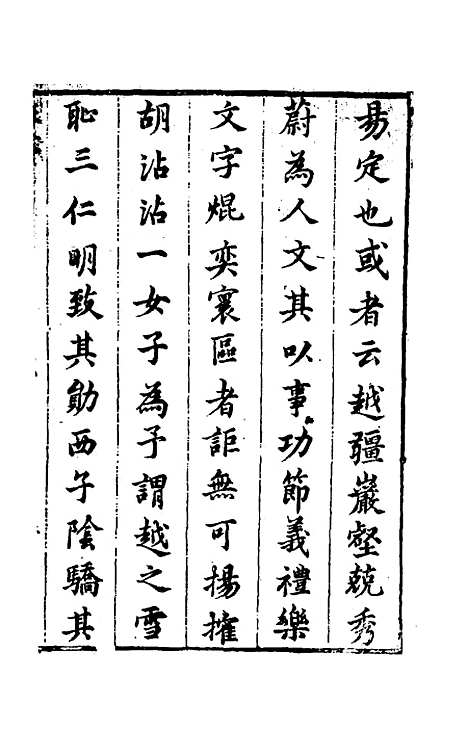 易定也或者云越疆巖壑競秀
蔚為人文其以事功節義禮樂
文字焜奕寰區者詎無可揚搉
胡沾沾一女子為予謂越之雪
恥三仁明致其勛西子陰驕其